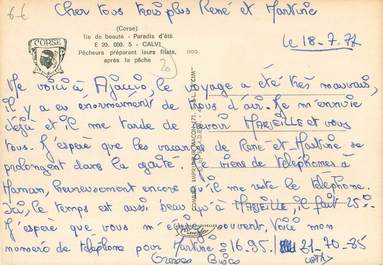 6-6
Cher tous trois plus René et Martine
(Corse)
Ile de beauté - Paradis d'été
E 20. 050. 5 - CALVI
Pêcheurs préparant leurs filets,
après la pêche
CORSE
20
le 18-7-77
Me voici à Ajaccio, le voyage a été très mauvais,
il y a eu énormément de trous d'air. Je m'ennuie
déjà et il me tarde de revoir MARSEILLE et vous
tous. J'espère que les vacances de René et Martine se
prolongent dans la gaité. Je viens de téléphoner à
Maman, heureusement encore qu'il me reste le téléphone.
Ici, le temps est aussi beau qu'à MARSEILLE, il fait 25°.
J'espère que vous m'écrirez souvent. Voici mon
numéro de téléphone pour Martine : 16.95. 21-70-25
Grosses Bises